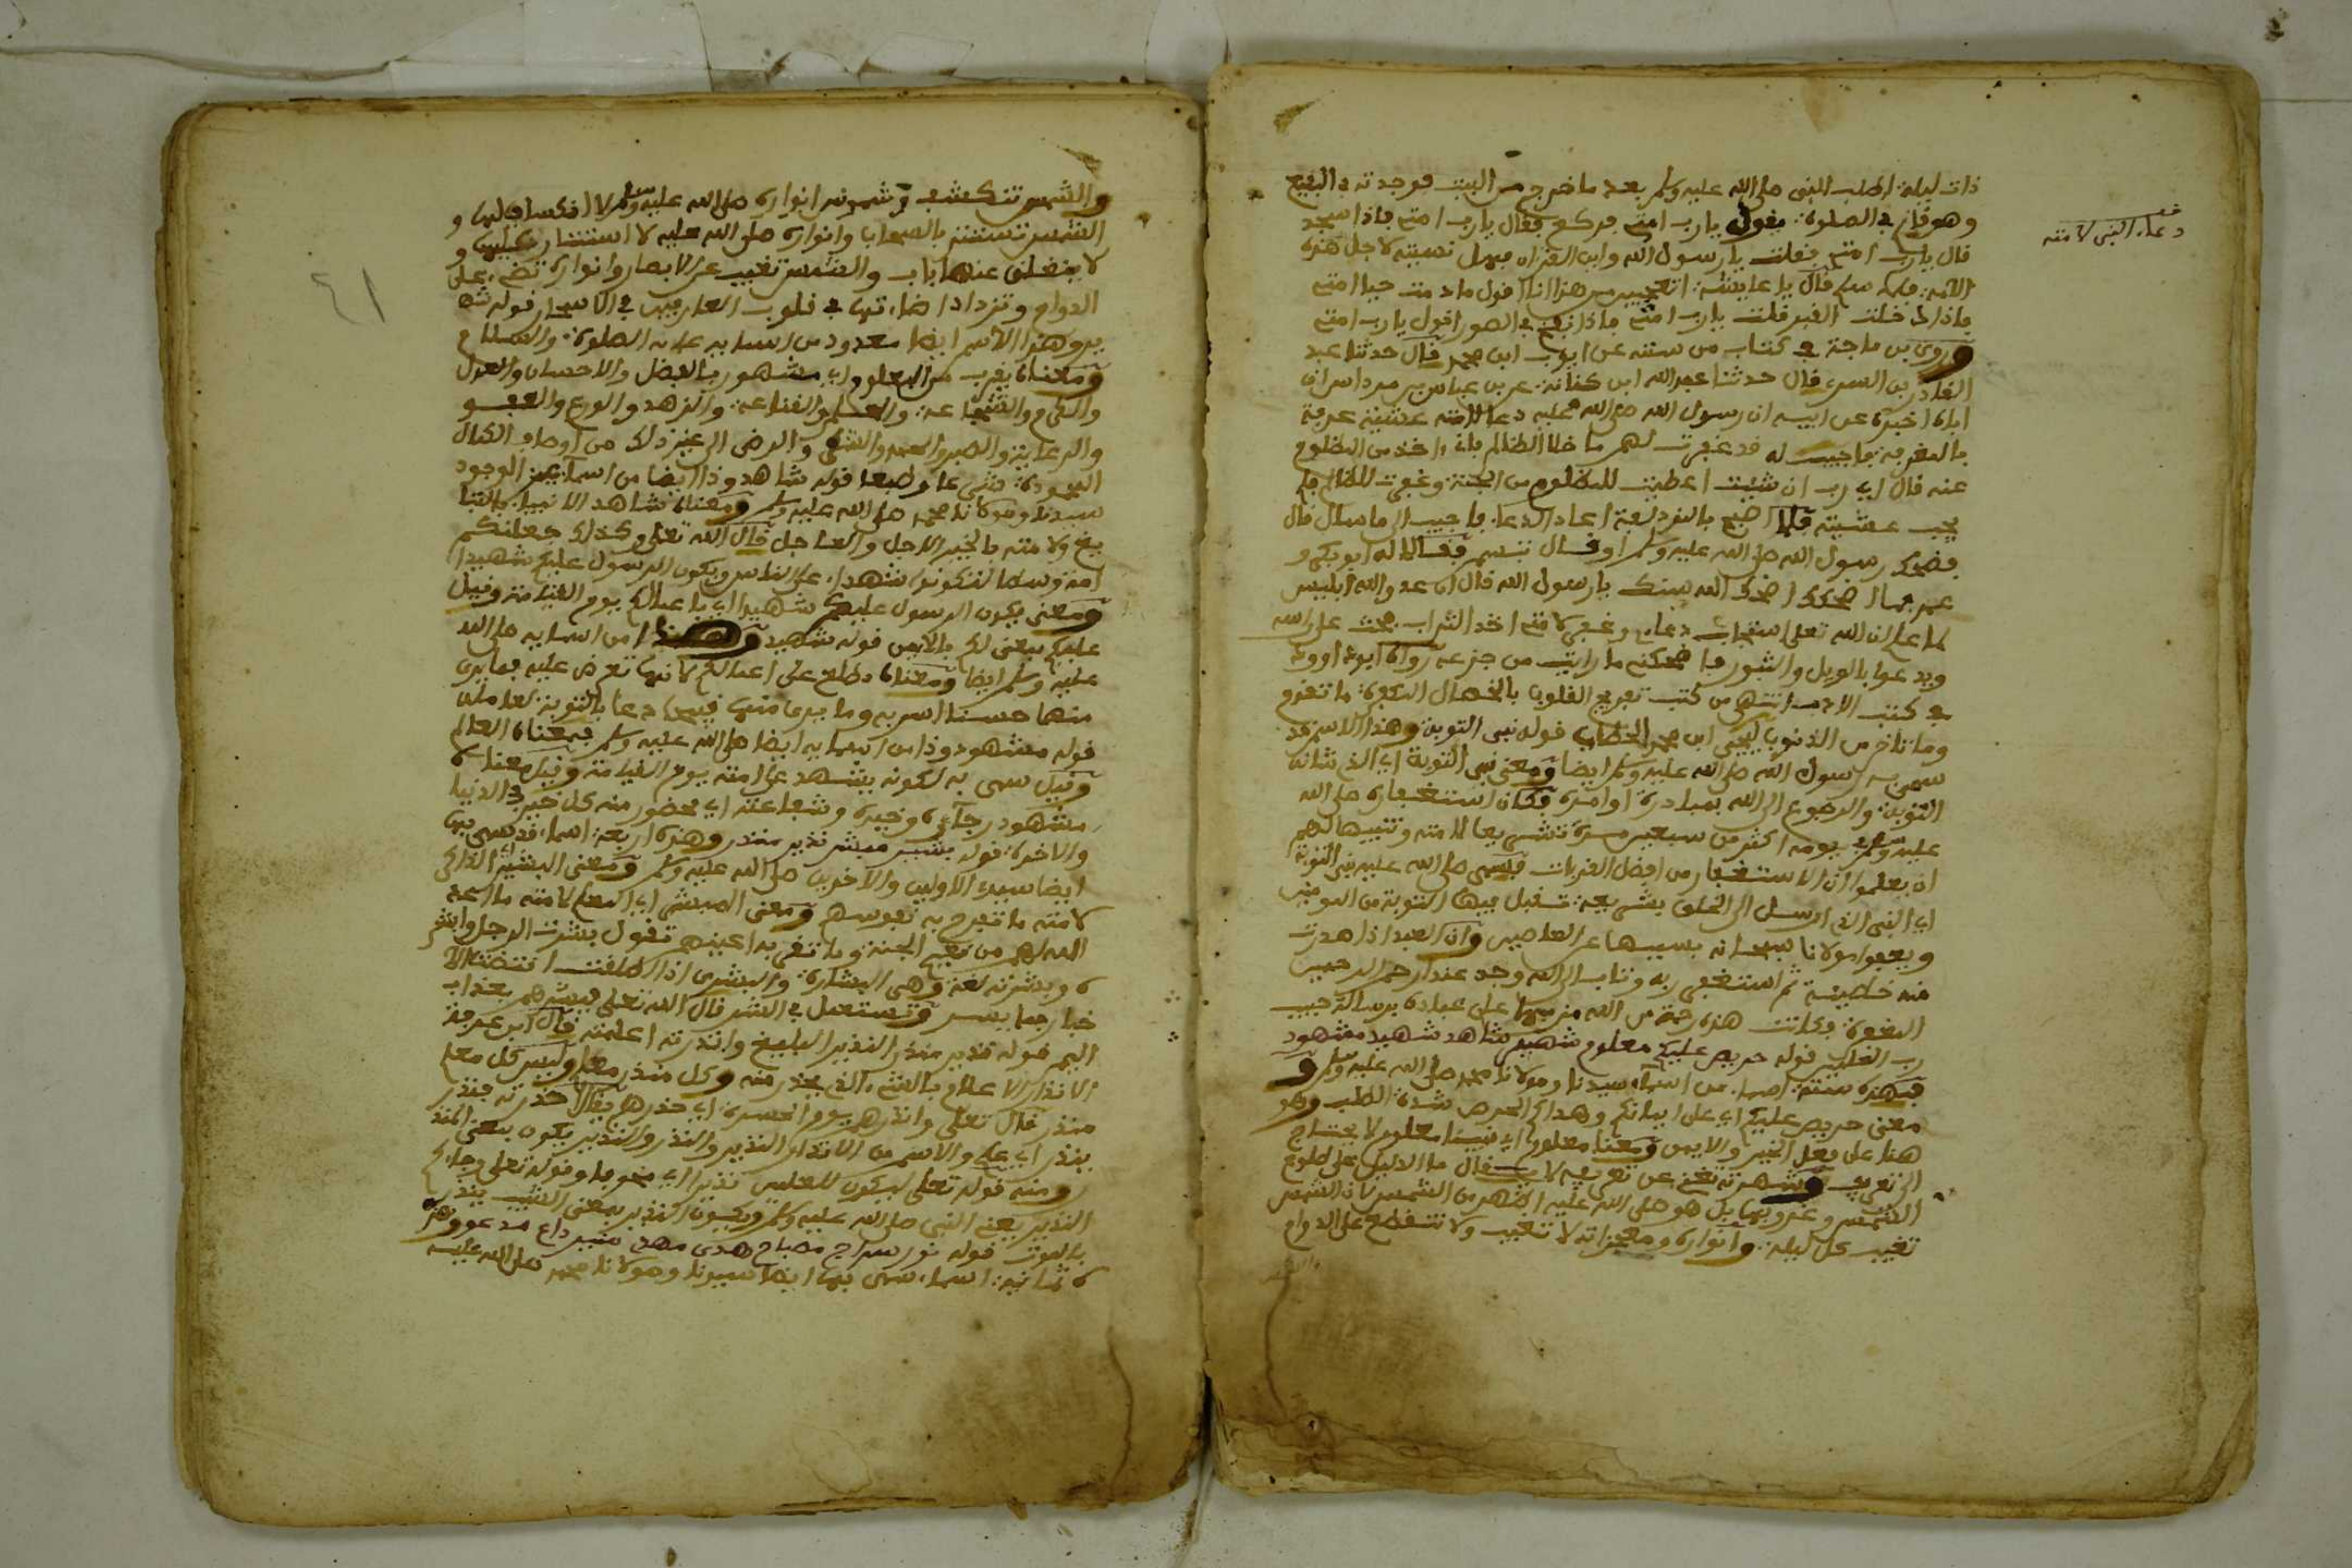 ذات ليلة اطلب النبى صلى الله عليه وسلم بعد ما خرج من البيت فوجدته فى البقيع
وهو قائم فى الصلوة يقول يا رب امتى فركع فقال يا رب امتى فاذا سجد
قال يا رب امتى فقلت يا رسول الله واين القران فهل نسيته لاجل هذه
الامة فلما سلم قال يا عايشة اتعجبين من هذا انا اقول ما دمت حيا امتى
فاذا دخلت القبر قلت يا رب امتى فاذا نفخ فى الصور اقول يا رب امتى
وروى بن ماجة فى كتاب من سننه عن ايوب ابن محمد قال حدثنا عبد
القادر بن السرى قال حدثنا عبد الله ابن كنانة بن عباس بن مرداس ان
اباه اخبره عن ابيه ان رسول الله صلى الله عليه دعا لامته عشية عرفة
بالمغفرة فاجيب له قد غفرت لهم ما خلا الظالم فانى اخذ من المظلوم
عنه قال اى رب ان شيت اعطيت المظلوم من الجنة وغفرت للظالم فلم
يجب عشيته فلما اصبح بالمزدلفة اعاد الدعا فاجيب الى ما سال قال
فضحك رسول الله صلى الله عليه وسلم او قال تبسم فقال له ابو بكر و
عمر ما اضحكك اضحك الله سنك يا رسول الله قال ان عدو الله ابليس
لما علم ان الله تعلى استجاب دعاى وغفر لامتى اخذ التراب يحث على راسه
ويدعوا بالويل والثبور فما ضحكنى ما رايت من جزعه رواه ابو داوود
فى كتب الادب انتهى من كتب تفريج القلوب بالخصال المكفرة ما تقدم
وما تاخر من الذنوب ليحيى ابن محمد الحطاب قوله نبى التوبة وهذا الاسم قد
سمى به رسول الله صلى الله عليه وسلم ايضا ومعنى نبى التوبة اى الذى شانه
التوبة والرجوع الى الله بمبادرة اوامره وكان استغفاره صلى الله
عليه وسلم فى يومه اكثر من سبعين مرة تشريعا لامته وتنبيها لهم
ان يعلموا ان الاستغفار من افضل القربات فسمى صلى الله عليه نبى التوبة
اى النبى الذى ارسل الى الخلق بشريعة تقبل فيها التوبة من المومنين
ويعفوا مولانا سبحانه بسببها عن العاصين وان العبد اذا صدرت
منه خطيئة ثم استغفر ربه وتاب الى الله وجد عند ارحم الرحمين
المغفرة وكانت هذه رحمة من الله من بها على عباده برسالة حبيب
رب العلمين قوله حريص عليكم معلوم شهير شاهد شهيد مشهود
فهذه ستة اسما من اسماء سيدنا ومولانا محمد صلى الله عليه وسلم و
معنى حريص عليكم اى على ايمانكم وهداكم الحرص شدة الطلب وهو
هنا على فعل الخير والايمن ومعنا معلوم اى نبينا معلوم لا يحتاج
الى تعريف وشهرته تغنى عن تعريفه لا يقال ما الدليل على طلوع
الشمس وغروبها بل هو صلى الله عليه اظهر من الشمس لان الشمس
تغيب كل ليلة وانواره ومعجزاته لا تغيب ولا تنقطع على الدوام
والشمس
قف
دعاء النبى لامته
والشمس تنكسف وشموس انواره صلى الله عليه وسلم لا انكساف لها و
الشمس تستتر بالسحاب وانواره صلى الله عليه لا استتار عليها و
لا ينغلق عنها باب والشمس تغيب عن الابصار وانواره تضىء على
الدوام وتزداد اضاءتها فى قلوب العارفين فى الاسحار قوله شهـ
ير وهذا الاسم ايضا معدود من اسمايه عليه الصلوة والسلام
ومعناه يقرب من المعلوم اى مشهور بالفضل والاحسان والعدل
والكرم والشجاعة والعلم والقناعة والزهد والورع والعفو
والرعاية والصبر والحمد والشكر والرضى الى غير ذلك من اوصاف الكمال
المحمودة شرعا وطبعا قوله شاهد وذا ايضا من اسماء عين الوجود
سيدنا ومولانا محمد صلى الله عليه وسلم ومعناه شاهد الانبيا بالتبليـ
يغ ولامته بالخير الاجل والعاجل قال الله تعلى وكذلك جعلنكم
امة وسطا لتكونوا شهداء على الناس ويكون الرسول عليكم شهيدا
ومعنى يكون الرسول عليكم شهيدا اى باعمالكم يوم القيامة وقيل
عليكم بمعنى لكم بالايمن قوله شهيد وهذا من اسمايه صلى الله
عليه وسلم ايضا ومعناه مطلع على اعمالكم لانها تعرض عليه فما يرى
منها حسنا اسر به وما يرى منها قبيحا دعا بالتوبة لعامله
قوله مشهود وذا من اسمايه ايضا صلى الله عليه وسلم فمعناه العالم
وقيل سمى به لكونه يشهد على امته يوم القيامة وقيل معناه
مشهود رجاءه وخيره وشفاعته اى محضور منه كل خير فى الدنيا
والاخرة قوله بشير مبشر نذير منذر وهذه اربعة اسماء قد سمى بها
ايضا سيد الاولين والآخرين صلى الله عليه وسلم ومعنى البشير الذاكر
لامته ما تفرح به نفوسهم ومعنى المبشر اى المعلم لامته ما اعده
الله لهم من نعيم الجنة وما تقر به اعينهم تقول بشرت الرجل وابشر
ه وبشرته لغة وهى البشارة والبشرى اذا اطلقت اقتضت الا
خبار بما يسر وتستعمل فى الشر قال الله تعلى فبشرهم بعذاب
اليم قوله نذير منذر النذير البليغ وانذرته اعلمته قال ابن عرفة
الانذار الاعلام بالشىء الذى يحذر منه وكل منذر معلم وليس كل معلم
منذر قال تعلى وانذرهم يوم الحسرة اى حذرهم يقال انذرته فنذر
ينذر اى علم والاسم من الانذار النذير والنذر والنذير يكون بمعنى المنذر
ومنه قوله تعلى ليكون للعلمين نذيرا اى مخوفا وقوله تعلى وجاءكم
النذير يعنى النبى صلى الله عليه وسلم ويكون النذير بمعنى الشيب ينذر
بالموت قوله نور سراج مصباح هدى مهدى منير داع مدعو وهذ
ه ثمانية اسماء سمى بها ايضا سيدنا ومولانا محمد صلى الله عليه
٤١